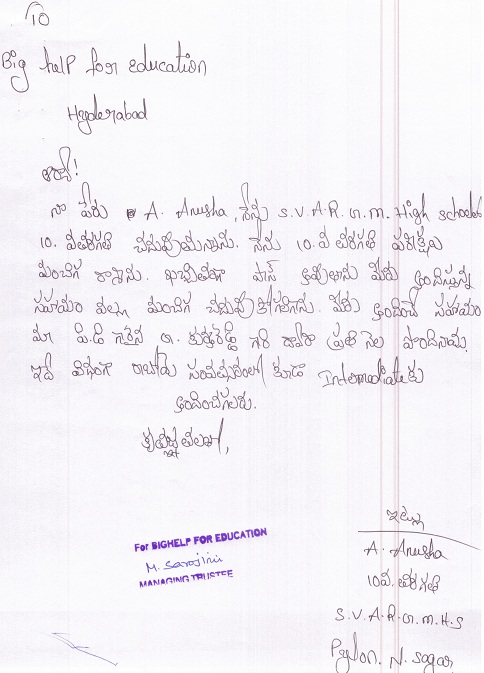 10
Big help for education
Hyderabad
ఆర్యా!
నా పేరు A. Anusha, నేను S.V.A.R.G.M. High school
10. వ తరగతి చదువుచున్నాను. నేను 10.వ తరగతి పరీక్షలు
మంచిగ రాశాను. ఖచ్చితంగా పాస్ అవుతాను మీరు అందిస్తున్న
సహాయం వల్ల మంచిగ చదువుకోగలిగాను. మీరు అందించే సహాయం
మా పి.డి గారైన G. కృష్ణారెడ్డి గారి ద్వారా ప్రతి నెల పొందినాము.
ఇదే విధంగా రాబోయే సంవత్సరంలో కూడా Intermediate కు
అందించగలరు.
కృతజ్ఞతలతో,
ఇట్లు
A. Anusha
10వ. తరగతి
S.V.A.R.G.M.H.S
Pylon. N. sagar
For BIGHELP FOR EDUCATION
M. Sarojini
MANAGING TRUSTEE